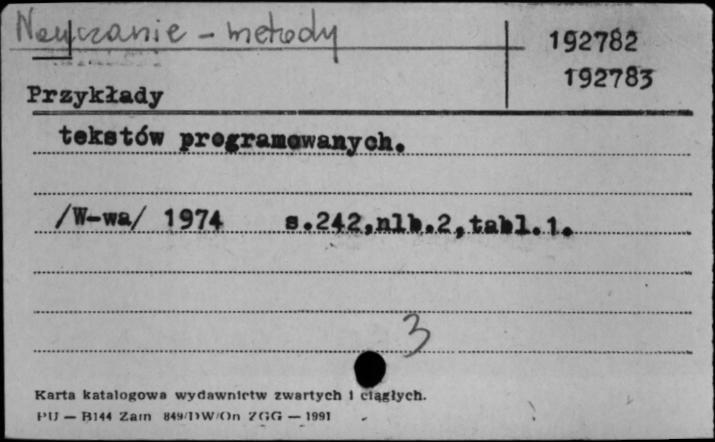 Nauczanie - metody
192782
192783
Przykłady
tekstów programowanych.
/W-wa/ 1974 s.242,nlb.2,tabl.1.
3
Karta katalogowa wydawnictw zwartych i ciągłych.
PU — B144 Zam 849/DW/On ZGG — 1991